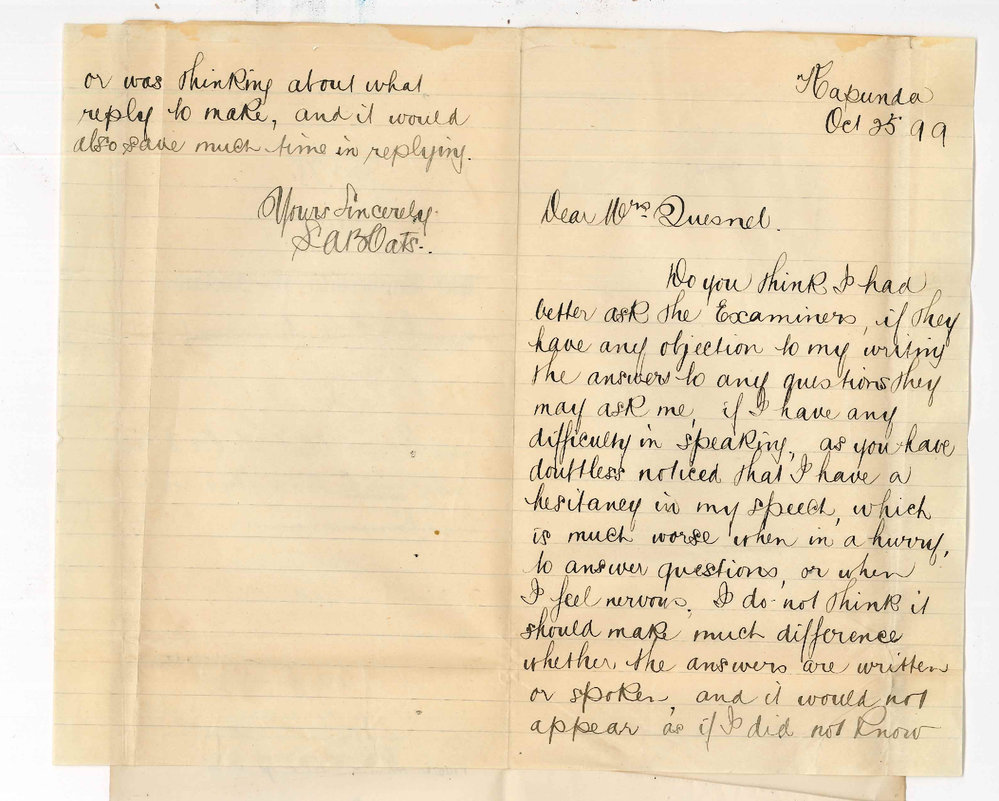 Kapunda
Oct 25 99
Dear Mrs Quesnel.
Do you think I had
better ask the Examiners, if they
have any objection to my writing
the answers to any questions they
may ask me, if I have any
difficulty in speaking, as you have
doubtless noticed that I have a
hesitancy in my speech, which
is much worse when in a hurry,
to answer questions, or when
I feel nervous. I do not think it
should make much difference
whether the answers are written
or spoken, and it would not
appear as if I did not know
or was thinking about what
reply to make, and it would
also save much time in replying.
Yours Sincerely.
S A B Oats.